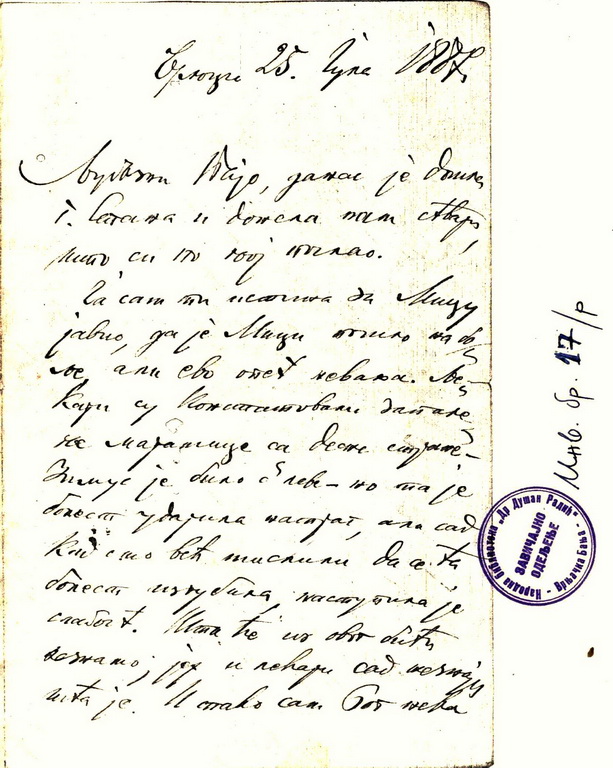 25. Јула 1887.
Мијо, данас је дошла
г. Стана и донела нам ствари,
што си по њој послао.
Ја сам ти истина за Мицу
јавио, да је Мици пошло на бо-
ље, али ево опет неваља. Ље-
кари су Констатовали запале-
ње марамице са десне стране.
Зимус је било с леве – но та је
болест ударила натраг, али сад
кад смо већ мислили да се та
болест изгубила, наступила је
слабост. Шта ће из овог бити
незнамо, јер и лекари сад незнају
шта је. И тако сам
Инв. бр. 17/р
Народна библиотека "Др Душан Радић" - Врњачка Бања
ЗАВИЧАЈНО
ОДЕЉЕЊЕ